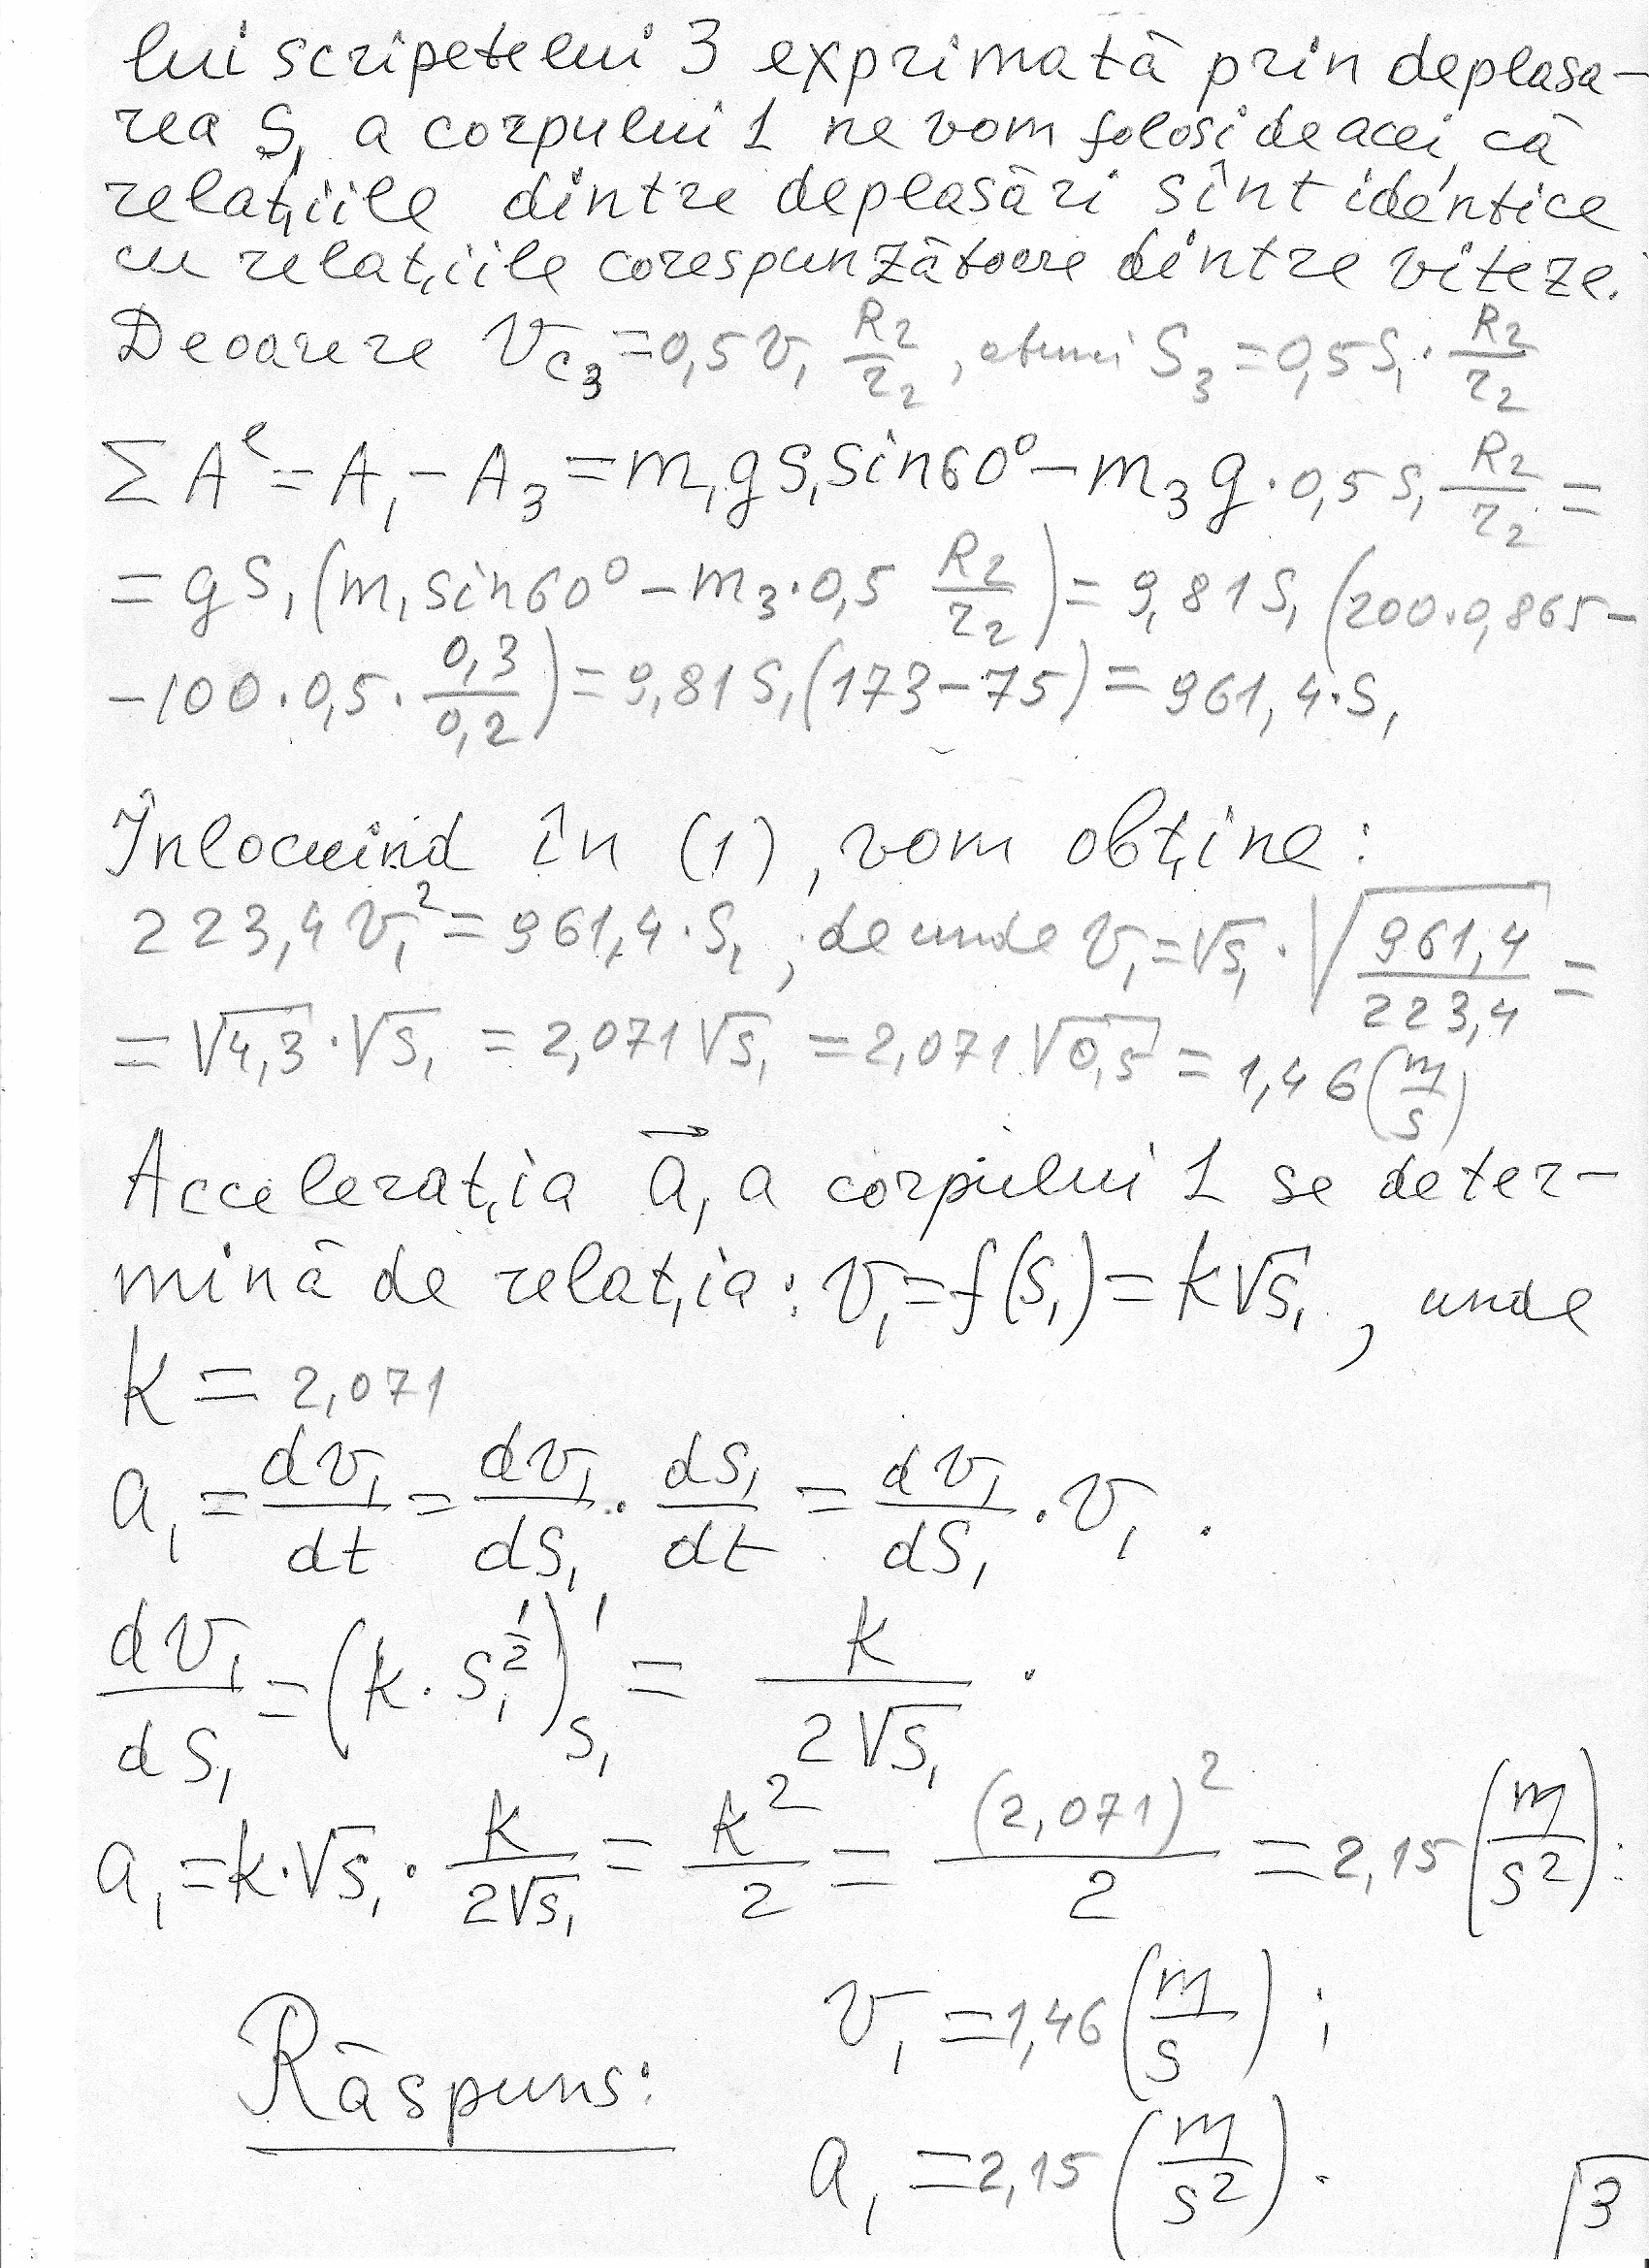 lui scripetelui 3 exprimată prin deplasa-
rea S₁ a corpului 1 ne vom folosi de acei că
relațiile dintre deplasări sînt identice
cu relațiile corespunzătoare dintre viteze.
Deoarere V_C₃ = 0,5 v₁ R₂/r₂, atunci S₃ = 0,5 S₁ · R₂/r₂
∑ Aᵉ = A₁ - A₃ = m₁gS₁sin60° - m₃g · 0,5 S₁ R₂/r₂ =
= gS₁(m₁sin60° - m₃·0,5 R₂/r₂) = 9,81 S₁ (200·0,865 -
- 100 · 0,5 · 0,3/0,2) = 9,81 S₁ (173 - 75) = 961,4 · S₁
Înlocuind în (1), vom obține:
223,4 v₁² = 961,4 · S₁, de unde v₁ = √S₁ · √(961,4/223,4) =
= √4,3 · √S₁ = 2,071 √S₁ = 2,071 √0,5 = 1,46 (m/s)
Accelerația a⃗₁ a corpului 1 se deter-
mină de relația: v₁ = f(S₁) = k√S₁, unde
k = 2,071
a₁ = dv₁/dt = dv₁/dS₁ · dS₁/dt = dv₁/dS₁ · v₁.
dv₁/dS₁ = (k · S₁^½)'_S₁ = k/(2√S₁).
a₁ = k·√S₁ · k/(2√S₁) = k²/2 = (2,071)²/2 = 2,15 (m/s²):
Răspuns: v₁ = 1,46 (m/s);
a₁ = 2,15 (m/s²).
3